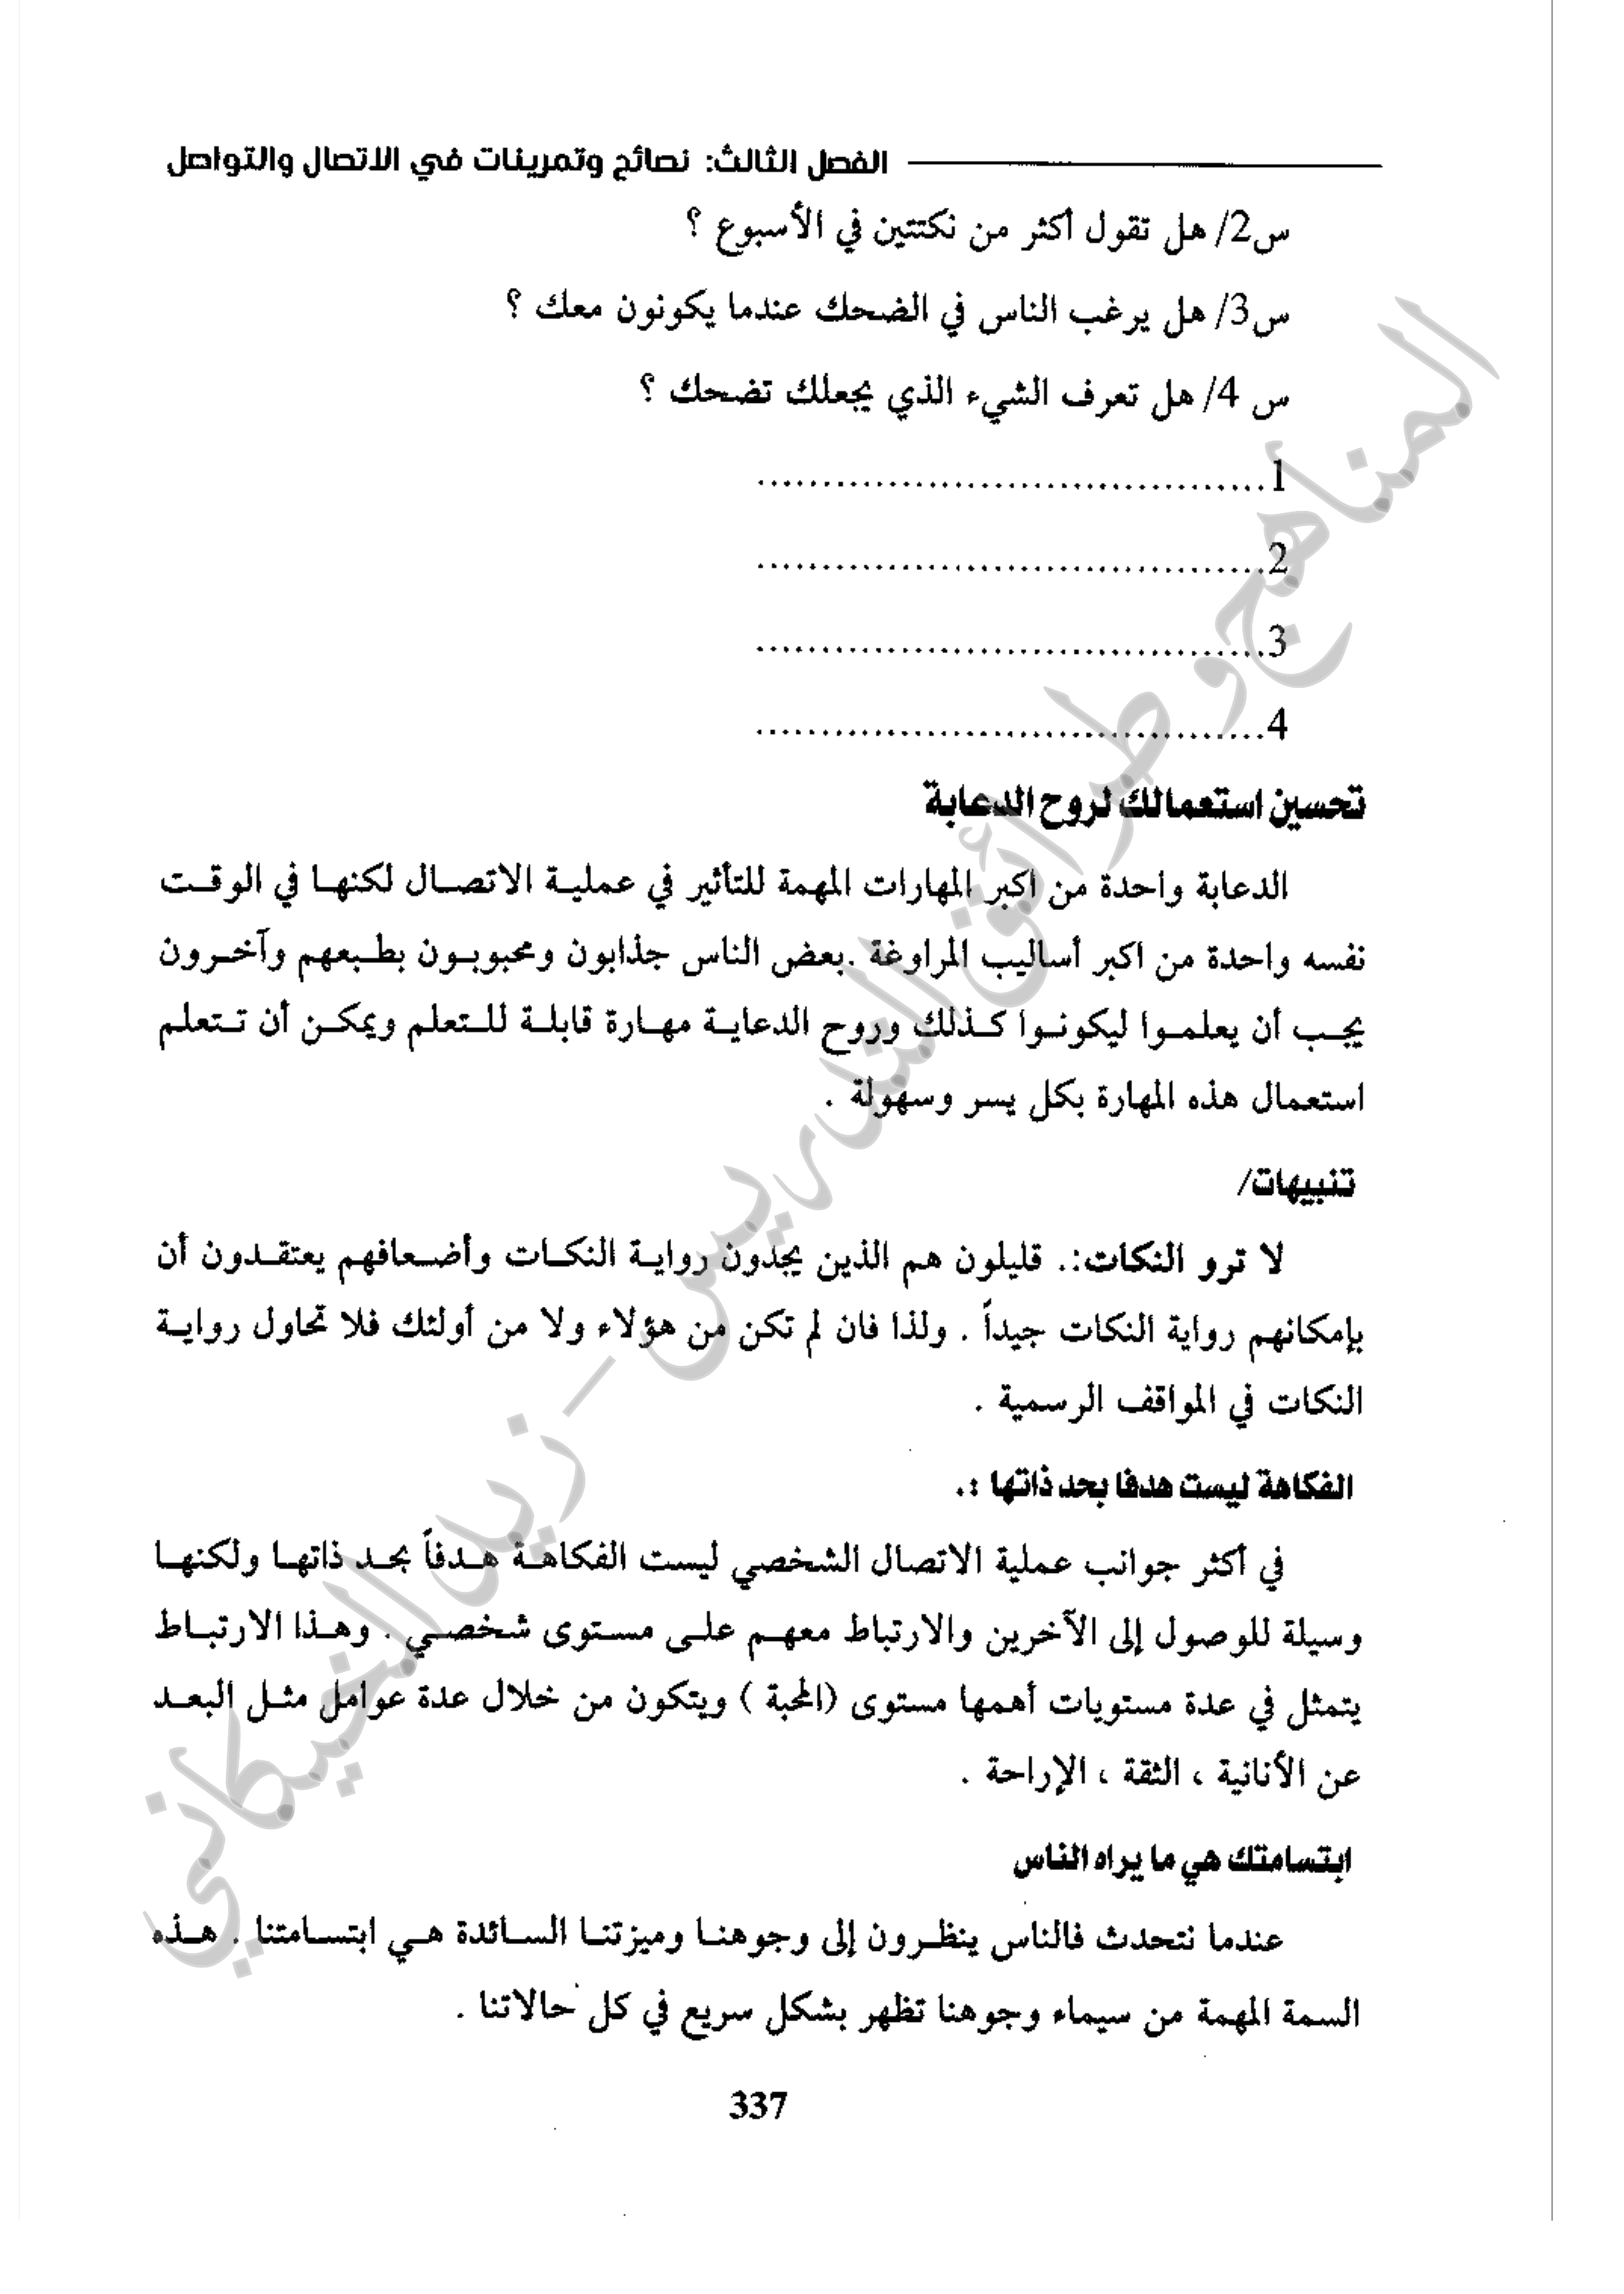 الفصل الثالث: نصائح وتمرينات في الاتصال والتواصل
س2/ هل تقول أكثر من نكتتين في الأسبوع ؟
س3/ هل يرغب الناس في الضحك عندما يكونون معك ؟
س 4/ هل تعرف الشيء الذي يجعلك تضحك ؟
1.......................................
2.......................................
3.......................................
4.......................................
تحسين استعمالك لروح الدعابة
الدعابة واحدة من اكبر المهارات المهمة للتأثير في عملية الاتصال لكنها في الوقت
نفسه واحدة من اكبر أساليب المراوغة .بعض الناس جذابون ومحبوبون بطبعهم وآخرون
يجب أن يعلموا ليكونوا كذلك وروح الدعاية مهارة قابلة للتعلم ويمكن أن تتعلم
استعمال هذه المهارة بكل يسر وسهولة .
تنبيهات/
لا ترو النكات:. قليلون هم الذين يجدون رواية النكات وأضعافهم يعتقدون أن
بإمكانهم رواية النكات جيداً . ولذا فان لم تكن من هؤلاء ولا من أولئك فلا تحاول رواية
النكات في المواقف الرسمية .
الفكاهة ليست هدفا بحد ذاتها :.
في أكثر جوانب عملية الاتصال الشخصي ليست الفكاهة هدفاً بحد ذاتها ولكنها
وسيلة للوصول إلى الآخرين والارتباط معهم على مستوى شخصي . وهذا الارتباط
يتمثل في عدة مستويات أهمها مستوى (المحبة ) ويتكون من خلال عدة عوامل مثل البعد
عن الأنانية ، الثقة ، الإراحة .
ابتسامتك هي ما يراه الناس
عندما نتحدث فالناس ينظرون إلى وجوهنا وميزتنا السائدة هي ابتسامتنا . هذه
السمة المهمة من سيماء وجوهنا تظهر بشكل سريع في كل حالاتنا .
337
المناهج وطرائق التدريس – زيد الخيكاني